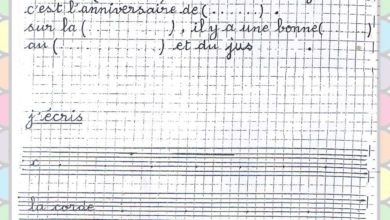 c'est l'anniversaire de (........) .
sur la (............) , il y a une bonne (........)
au (..............) et du jus .
j'écris
la corde